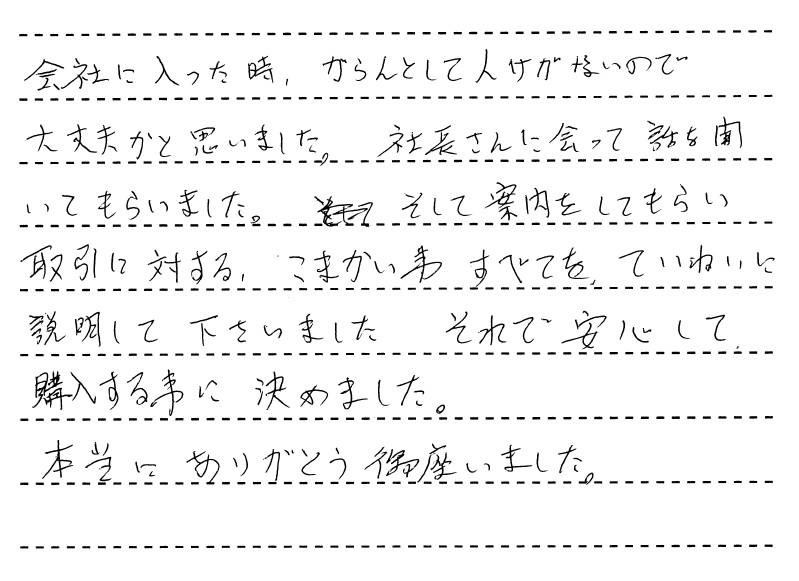 会社に入った時、がらんとして人けがないので
大丈夫かと思いました。 社長さんに会って話を聞
いてもらいました。 そして案内をしてもらい
取引に対する、こまかい事すべてを、ていねいに
説明して下さいました それで安心して、
購入する事に決めました。
本当にありがとう御座いました。